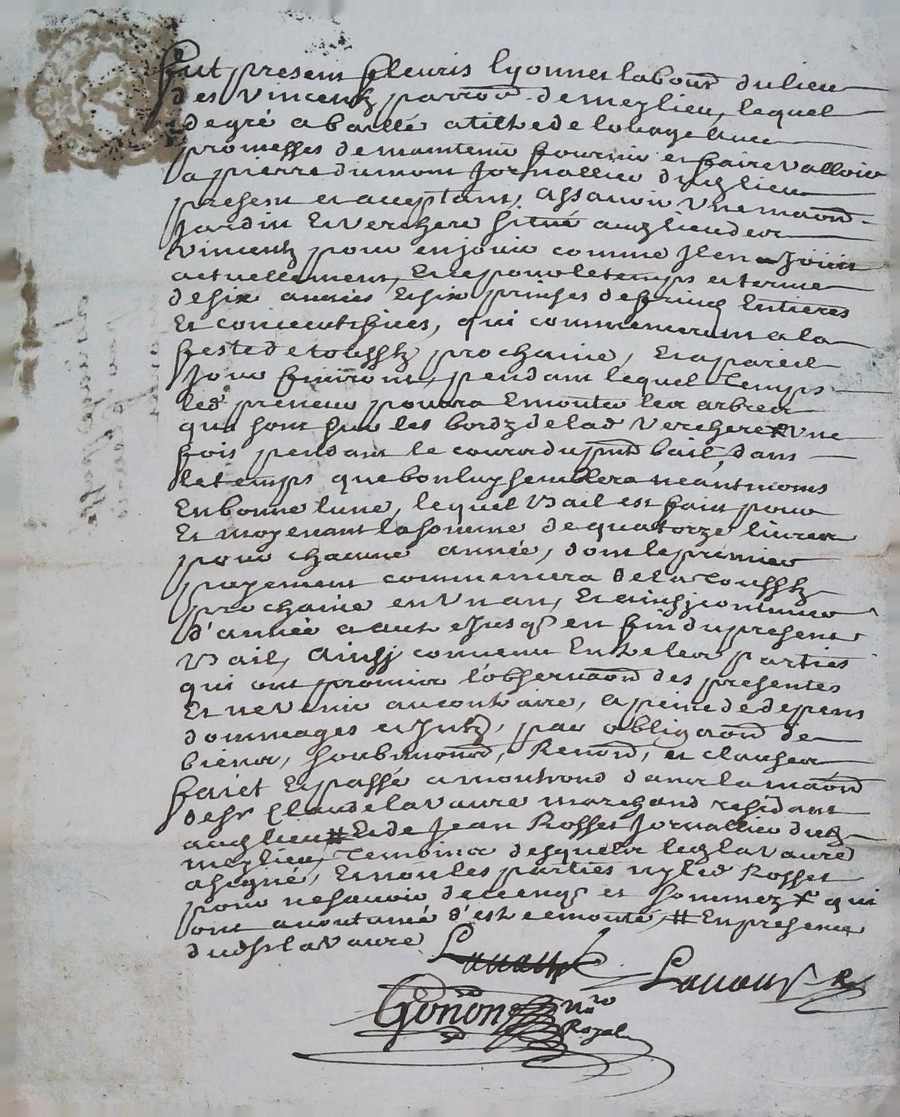 Fut present fleuris lyonnet labour du lieu
des Vincentz parroê. de meylieu, lequel
de gré a baillé a tiltre de louage avec
promesses de maintenir fournir et faire valloir
a pierre dumont Jornallier dud lieu
present et acceptant, assavoir Une maôn
Jardin Et verchere situé aud lieu des
Vincentz pour en jouir comme Il en a Joui
actuellement, Et ce pour le temps et terme
de six années Et six prinses de fruitz Entieres
Et consecutifves, qui commenceront a la
feste de toussts prochaine, Et a pareil
Jour finiront, pendant lequel temps
led preneur pourra Emonter les arbres
qui sont sur les bordz de lad verchere # Une
fois pendant le cours du pnt bail, dans
le temps que bon luy semblera neantmoins
En bonne lune, lequel Bail est fait pour
Et moyenant la somme de quatorze livres
pour chacune année, dont le premier
payement commencera de la toussts
prochaine en Un an, Et ainsy continuer
d'année a autre Jusqs en fin du present
Bail, Ainsy convenu Entre les parties
qui ont promis l'observaôn des presentes
Et ne venir au contraire, a peine de depens
dommages et Intz, par obligaôn de
biens, soubmiôns, Renôns, et clauses
faict Et passé a montrond dans la maôn
de sr Claude lavaure marchand residant
aud lieu # Et de Jean Rosset Jornallier dud
meylieu, temoins desquels led lavaure
a signé, Et non les parties ny led Rosset
pour ne savoir de ce enqs et sommez # qui
ont acoutumé d'estre emonté, # En presence
dud sr lavaure
Lavaure
Lavaure
Gonon nre
Royal